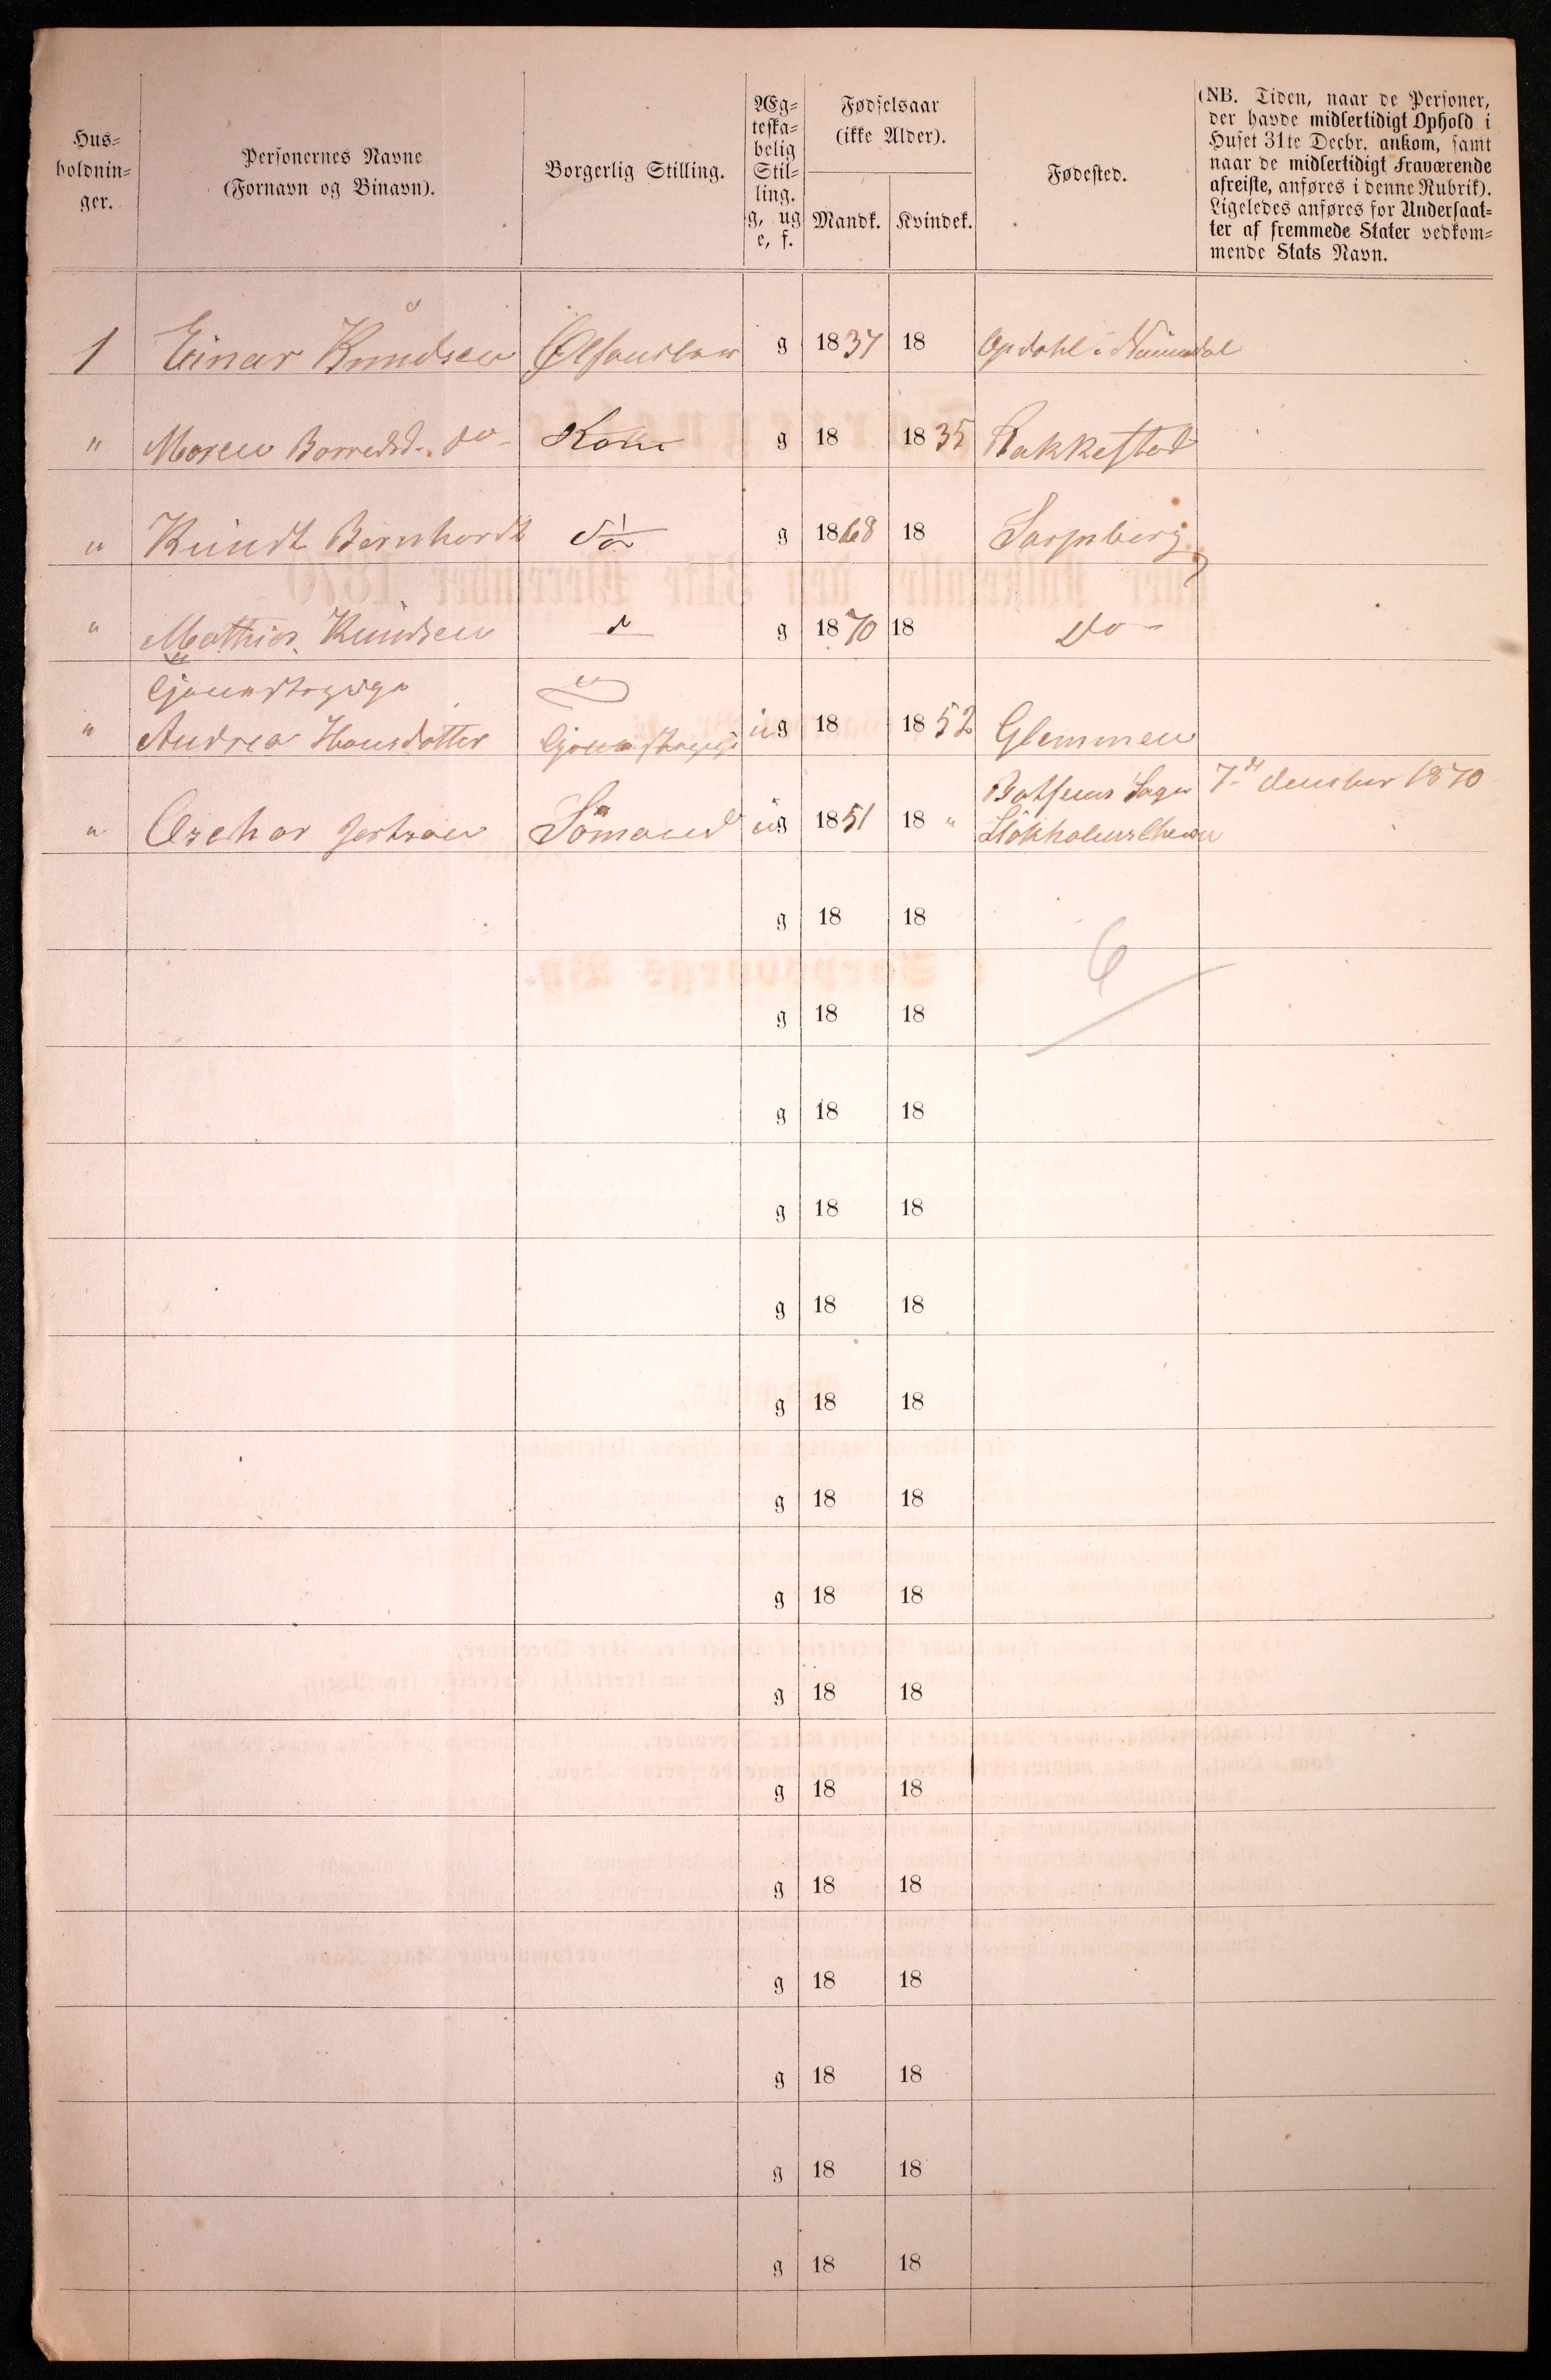 Hus-
holdnin-
ger.
Personernes Navne
(Fornavn og Binavn).
Borgerlig Stilling.
Æg-
teska-
belig
Stil-
ling.
g, ug
e, f.
Fødselsaar
(ikke Alder).
Mandk. Kvindek.
Fødested.
(NB. Tiden, naar de Personer,
der havde midlertidigt Ophold i
Huset 31te Decbr. ankom, samt
naar de midlertidigt Fraværende
afreiste, anføres i denne Rubrik).
Ligeledes anføres for Undersaat-
ter af fremmede Stater vedkom-
mende Stats Navn.
1 Einar Knudsen g 1837 18 Opdahl i Numedal
" Maren do Kone g 18 1835 Rakkestad
" Knudt Bernhardt g 1868 18 Sarpsborg
" Mathias Knudsen g 1870 18 do
" Andrea Hansdatter ug 18 1852 Glemmen
7de 1870
" Oschar Sømand ug 1851 18 "
g 18 18
6
g 18 18
g 18 18
g 18 18
g 18 18
g 18 18
g 18 18
g 18 18
g 18 18
g 18 18
g 18 18
g 18 18
g 18 18
g 18 18
g 18 18